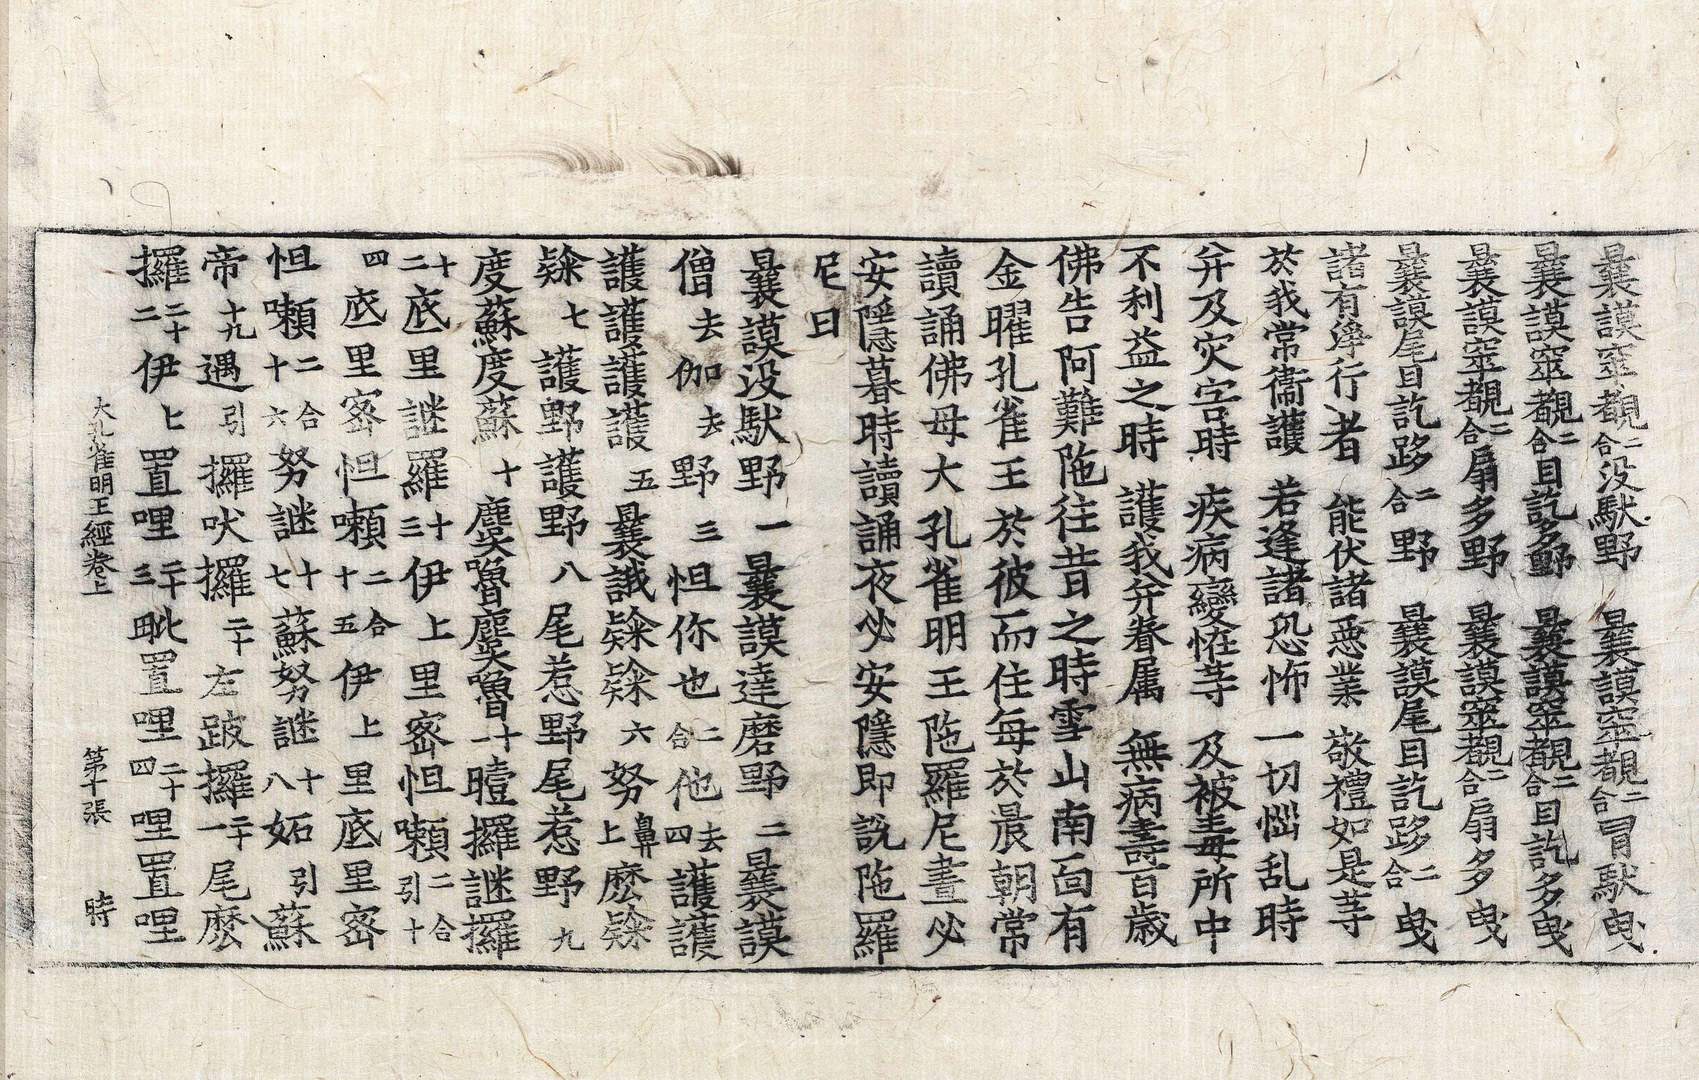 曩謨窣覩二合没馱野 曩謨窣覩二合冒馱曳
曩謨窣覩二合目訖多野 曩謨窣覩二合目訖多曳
曩謨窣覩二合扇多野 曩謨窣覩二合扇多曳
曩謨尾目訖跢二合野 曩謨尾目訖跢二合曳
諸有淨行者 能伏諸惡業 敬禮如是等
於我常衞護 若逢諸恐怖 一切惱乱時
并及灾害時 疾病變恠等 及被毒所中
不利益之時 護我并眷属 無病壽百歳
佛告阿難陁往昔之時雪山南面有
金曜孔雀王於彼而住每於晨朝常
讀誦佛母大孔雀明王陁羅尼晝必
安隱暮時讀誦夜必安隱即説陁羅
尼曰
曩謨没馱野一曩謨達磨野二曩謨
僧去伽去野三怛你也二合他去四護護
護護護護五曩誐𨽾𨽾六努鼻上麽𨽾
𨽾七護野護野八尾惹野尾惹野九
度蘇度蘇十麌嚕麌嚕十一曀攞謎攞
十二底里謎羅十三伊上里密怛嚩引二合十
四底里密怛嚩二合十五伊上里底里密
怛嚩二合十六努謎十七蘇努謎十八妬引蘇
帝十九遇引攞吠攞二十左跛攞二十一尾麽
攞二十二伊上置哩二十三毗置哩二十四哩置哩
大孔雀明王經卷上 第十張 時